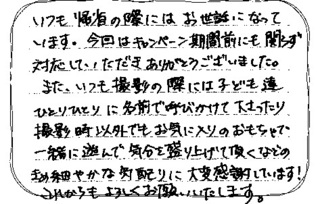 いつも帰省の際にはお世話になって
います。今回はキャンペーン期間前にも関らず
対応して、いただきありがとうございました。
また、いつも撮影の際には子ども達
ひとりひとりに名前で呼びかけて下さったり
撮影時以外でもお気に入りのおもちゃで
一緒に遊んで気分を盛り上げて頂くなどの
きめ細やかな気配りに大変感謝しています!
これからもよろしくお願いいたします。